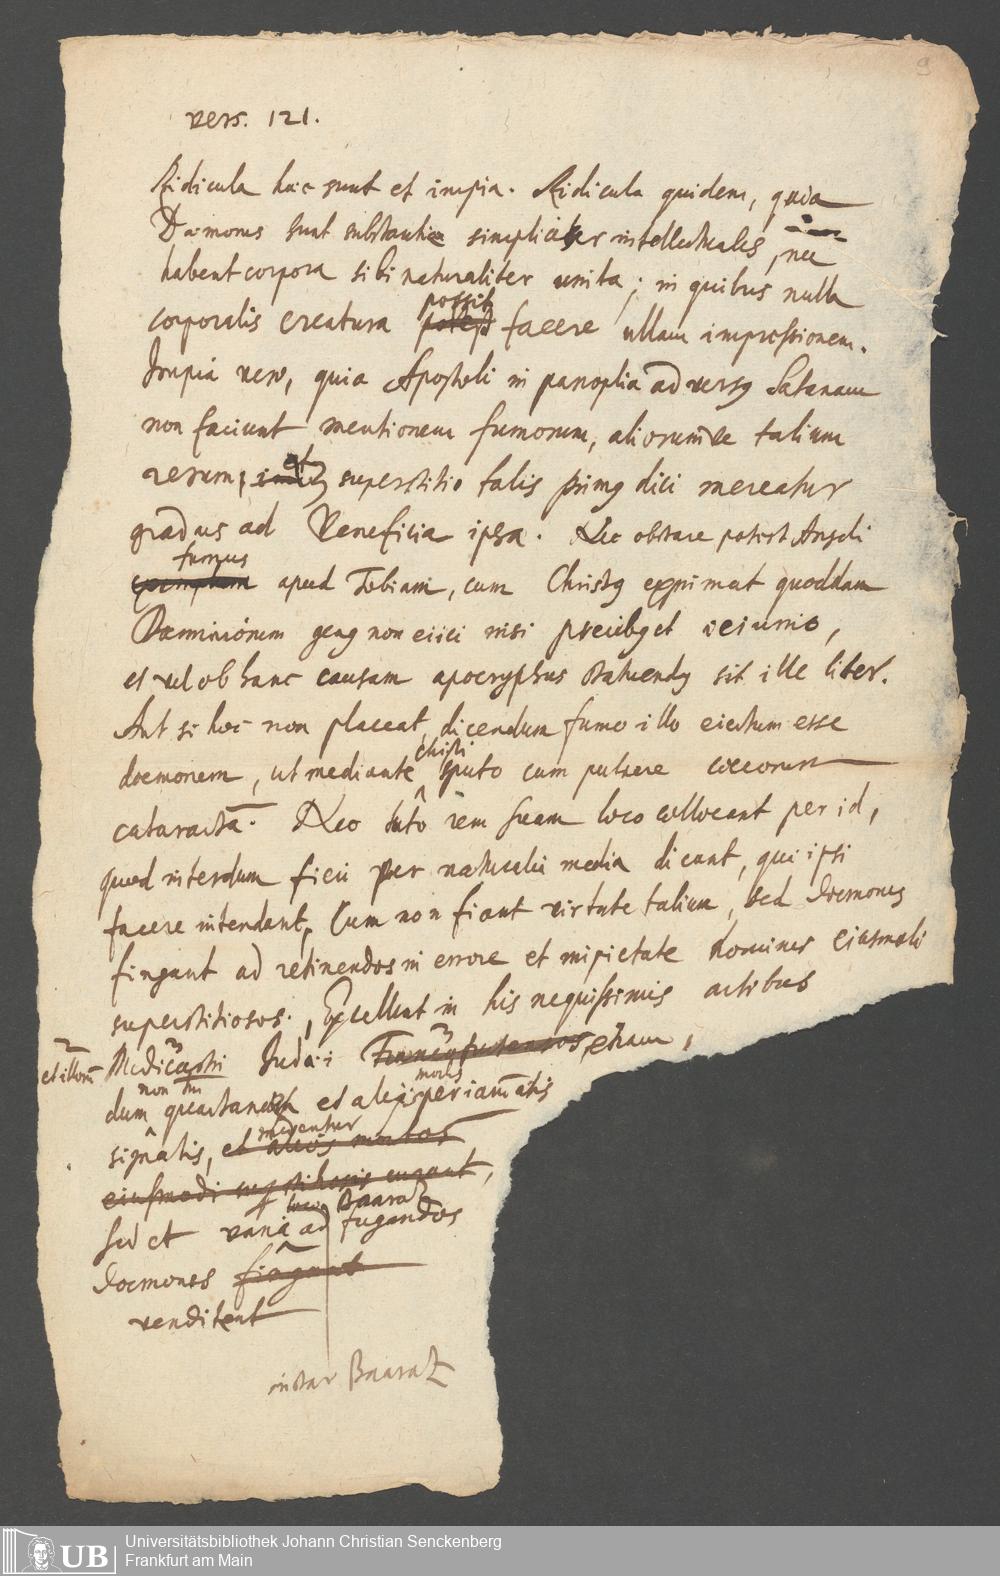 9
vers. 121.
Ridicula haec sunt et impia. Ridicula quidem, quia
Daemones sunt substantiae simpliciter intellectuales, nec
habent corpora sibi naturaliter unita; in quibus nulla
possit
corporalis creatura potest facere ullam impressionem.
Impia vero, quia Apostoli in panoplia adversq Satanam
non faciunt mentionem fumorum, aliorumve talium
rerum, et superstitio talis primq dici mereatur
gradus ad Veneficia ipsa. Nec obstare potest Angeli
fumus
exemplum apud Tobiam, cum Christq exprimat quoddam
Daemoniorum genq non eiici nisi precibq et ieiunio,
et vel ob hanc causam apocryphus statuendq sit ille liber.
Aut si hoc non placeat, dicendum fumo illo eiectum esse
Christi
daemonem, ut mediante sputo cum pulvere coecorum
cataracta. Nec tuto rem suam loco collocant per id,
quod interdum fieri per naturalia media dicant, qui ipsi
facere intendant, cum non fiant virtute talium, sed daemones
fingant ad retinendos in errore et impietate homines eiusmodi
superstitiosos. Excellunt in his nequissimis artibus
Medicastri Judaei etiam,
non
morbs
dum et
signatis, et
medentur
eiusmodi curant,
Baaratz
sed et varia ad fugandos
daemones fingunt
venditent
instar Baaratz
UB
Universitätsbibliothek Johann Christian Senckenberg
Frankfurt am Main